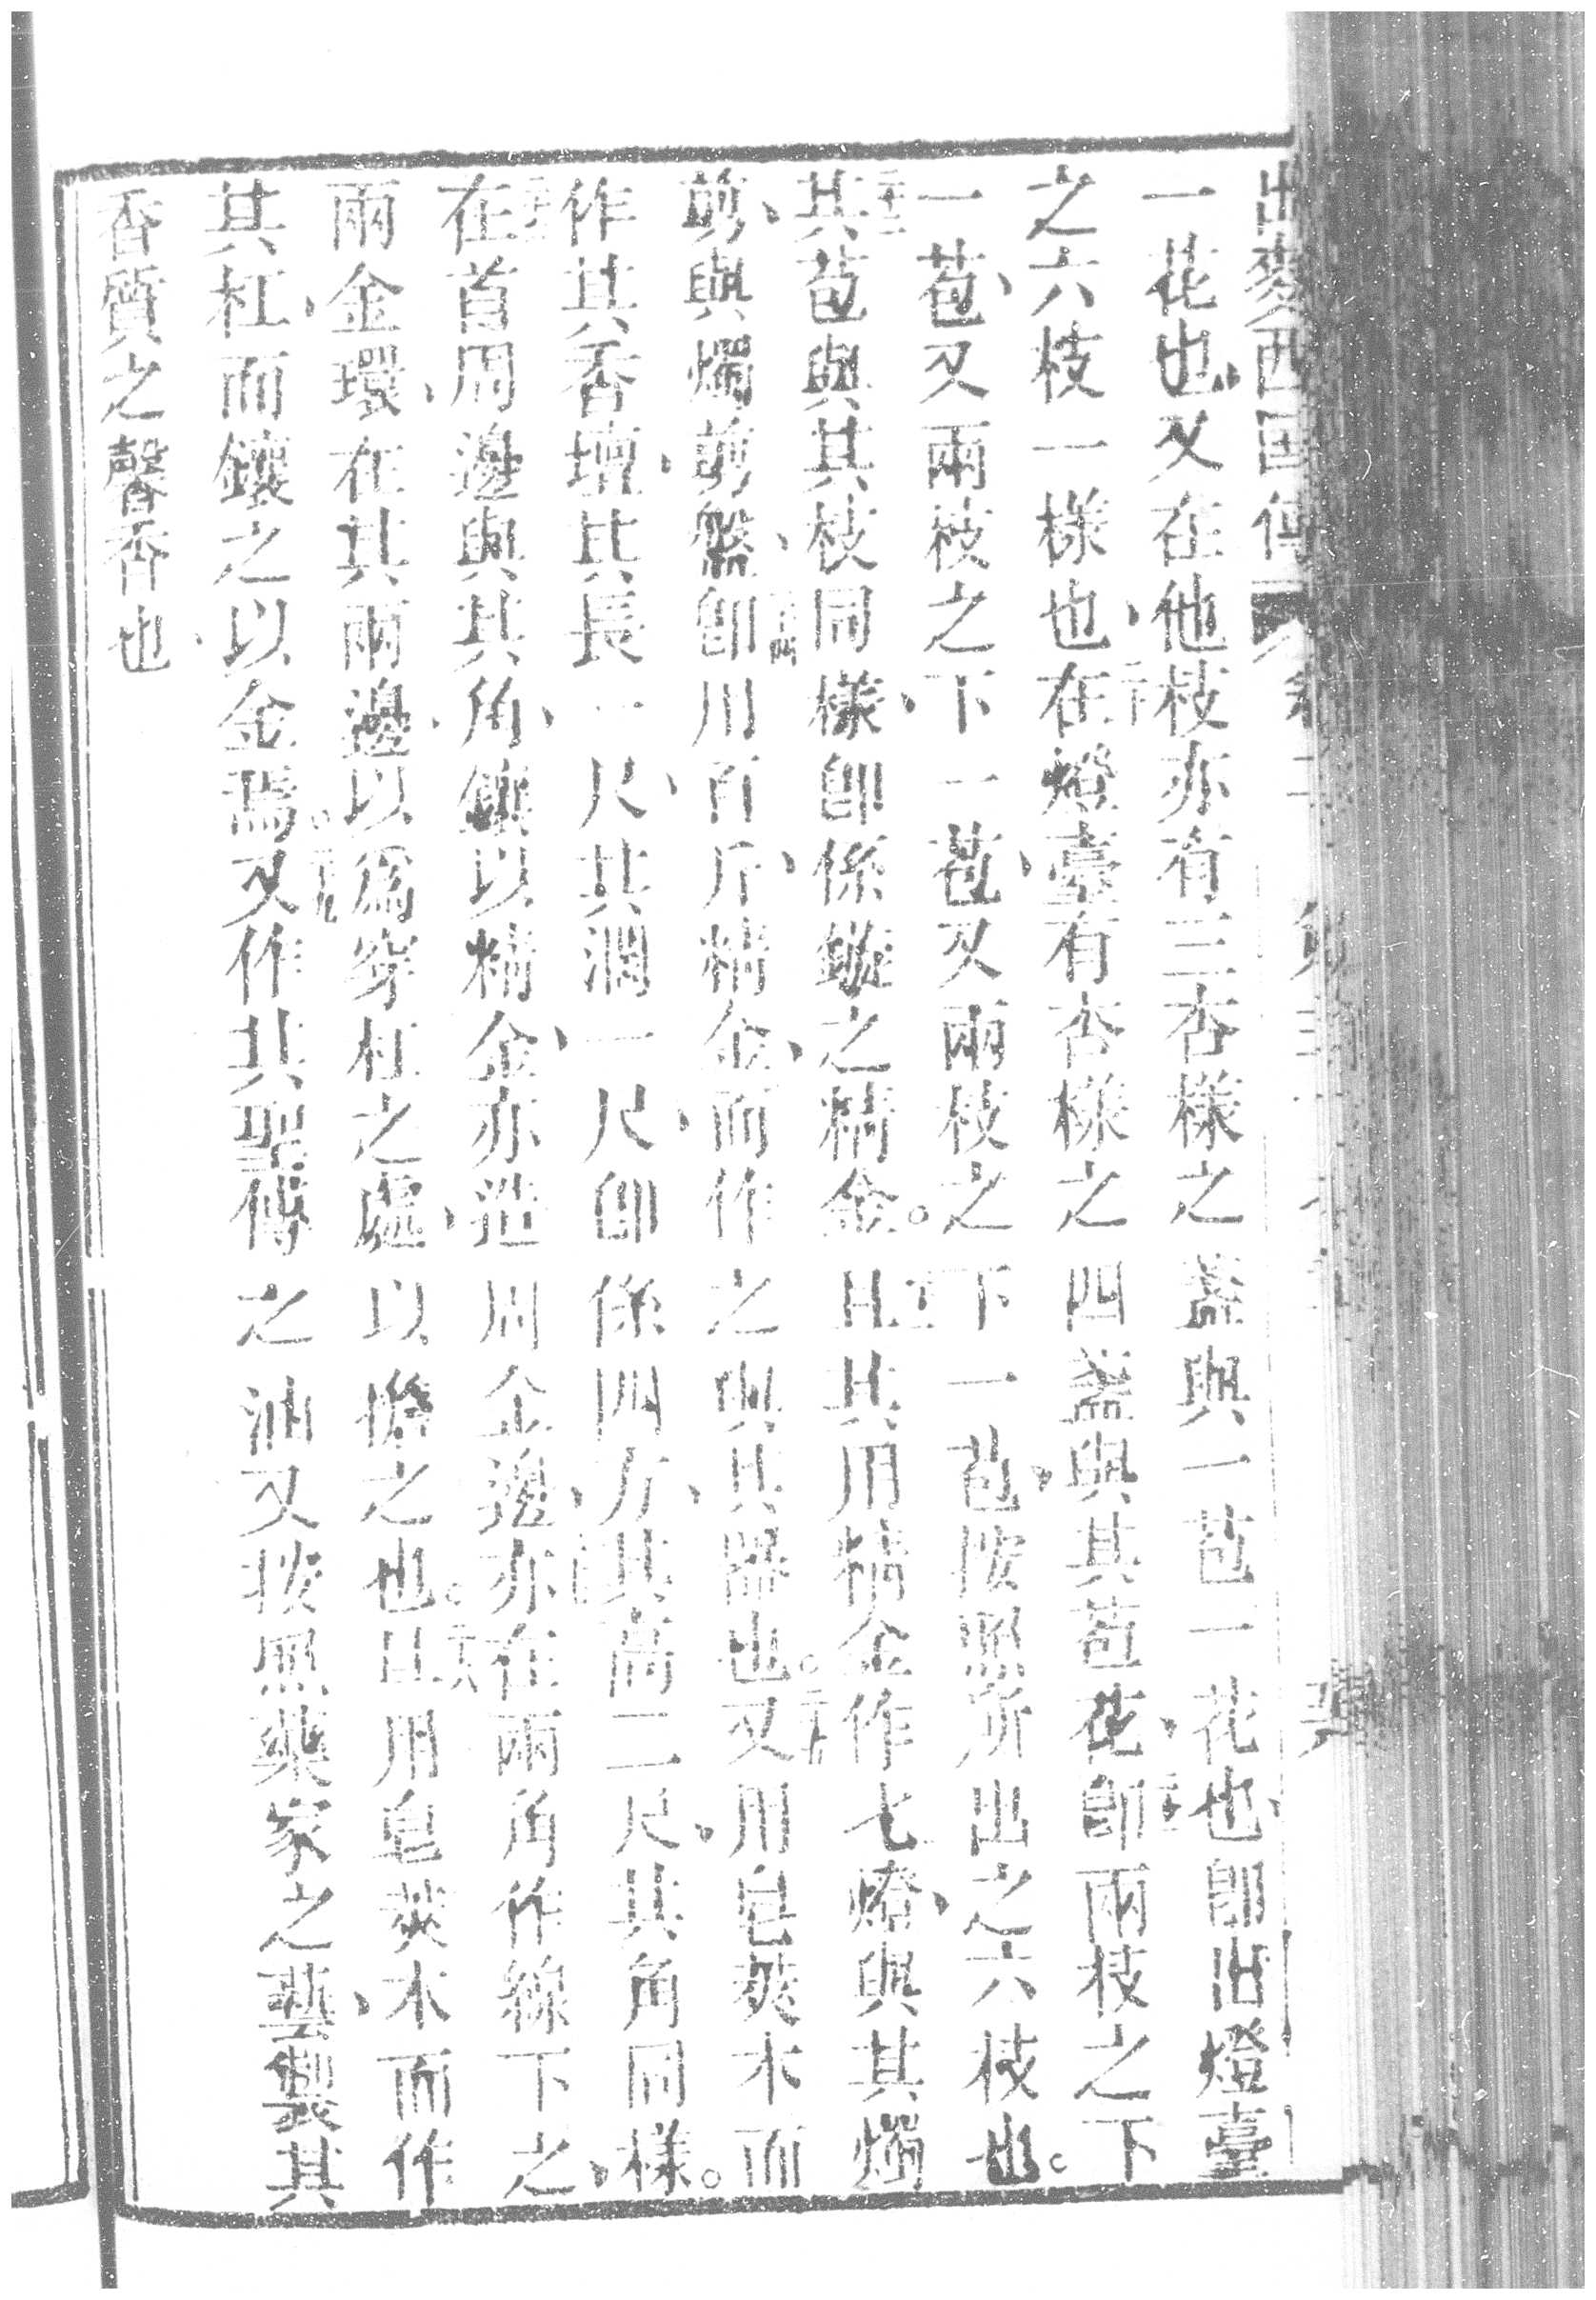 出麥西國傳
一花也又在他枝亦有三杏樣之盞與一苞一花也卽出燈臺
之六枝一樣也、二十在燈臺有杏樣之四盞與其苞花、卽兩枝之下
一苞、又兩枝之下一苞、又兩枝之下一苞、按照所出之六枝也。
二十二其苞與其枝同樣、卽係鏇之精金。且其用精金作七燈、與其燭
剪、與燭剪盤、二十四卽用百斤精金、而作之與其器也。二十五又用皂莢木而
作其香壇、其長一尺、其濶一尺、卽係四方、其高二尺。其角同樣。
二十六在首周邊與其角、鑲以精金、亦造周金邊、亦在兩角作線下之、
兩金環、在其兩邊、以爲穿杠之處、以擔之也。二十八且用皂莢木而作
其杠、而鑲之以金焉。二十九又作其聖傅之油又按照藥家之藝、製其
香質之馨香也、